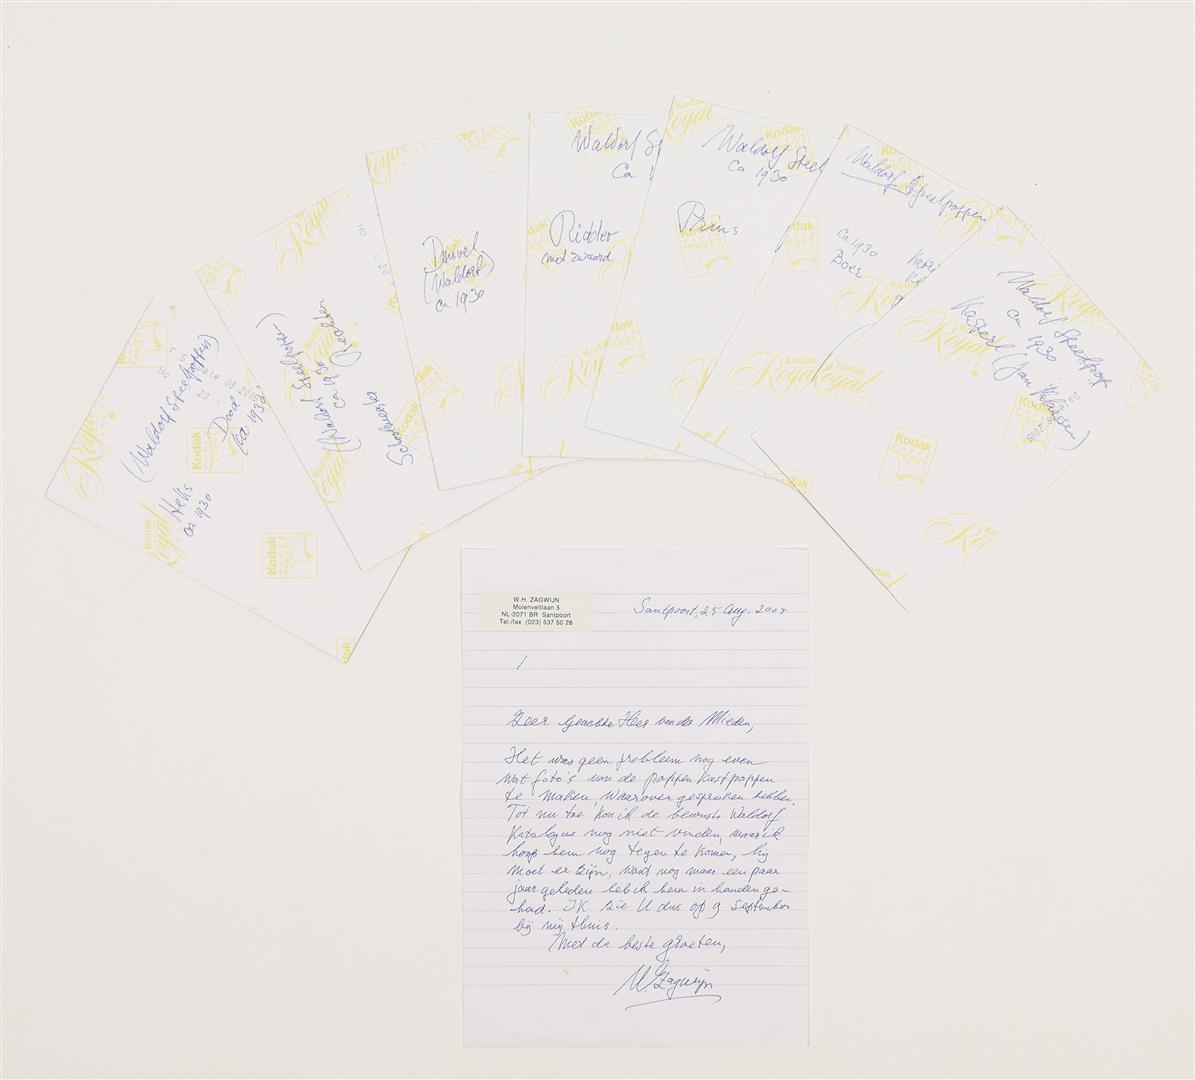 (Waldorf Steelpoppen)
Dood
(ca 1930)
Heks
ca 1930
(Waldorf Steelpoppen)
ca 1930
Rechter
Duivel
(Waldorf)
ca 1930
Waldorf S
Ca
Ridder
met zwaard
Waldorf Steel
Ca 1930
Prins
Waldorf Steelpoppen
ca 1930
Boer
Waldorf Steelpop
ca 1930
Kasperl (Jan Klaassen)
Kodak
Royal
PAPER
W.H. ZAGWIJN
Molenveltlaan 5
NL-2071 BR Santpoort
Tel./fax (023) 537 50 28
Santpoort, 25 Aug. 2005
Zeer Geachte Heer van der Mieden,
Het was geen probleem nog even
wat foto's van de poppenkastpoppen
te maken, waarover gesproken hebben.
Tot nu toe kon ik de bewuste Waldorf
Katalogus nog niet vinden, maar ik
hoop hem nog tegen te komen, hij
moet er zijn, want nog maar een paar
jaar geleden heb ik hem in handen ge-
had. Ik zie U dus op 9 September
bij mij thuis.
Met de beste groeten,
W. Zagwijn